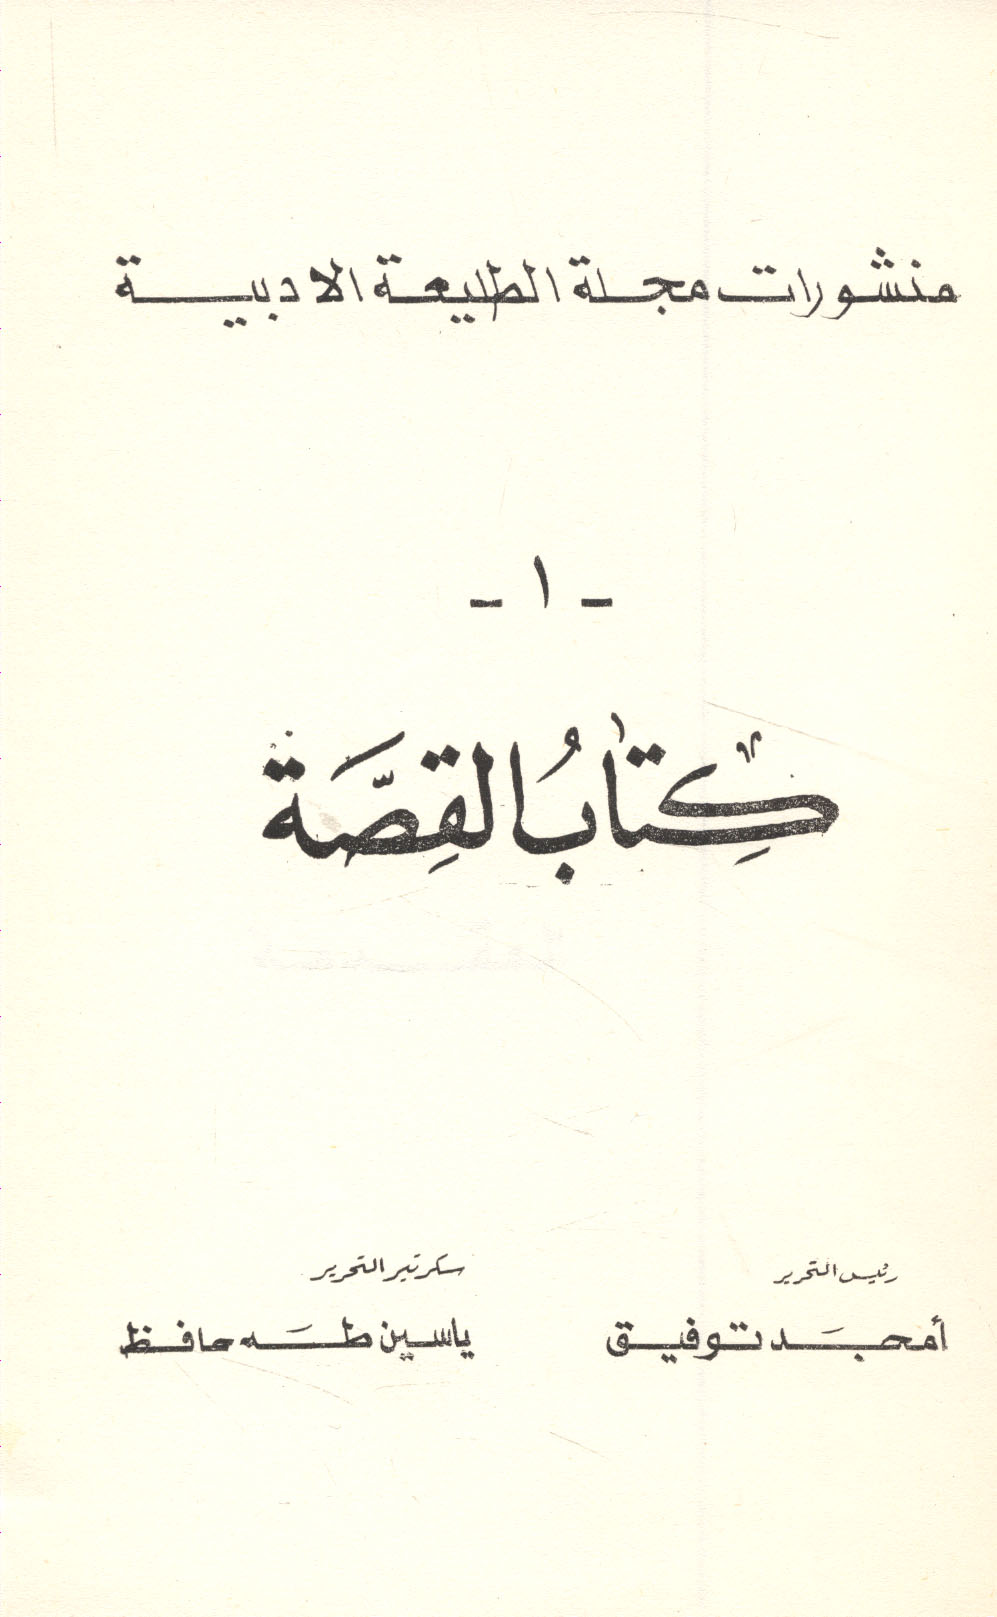 منشورات مجلة الطليعة الادبية
- ١ -
كِتابُ القِصَّة
رئيس التحرير
أمجد توفيق
سكرتير التحرير
ياسين طه حافظ